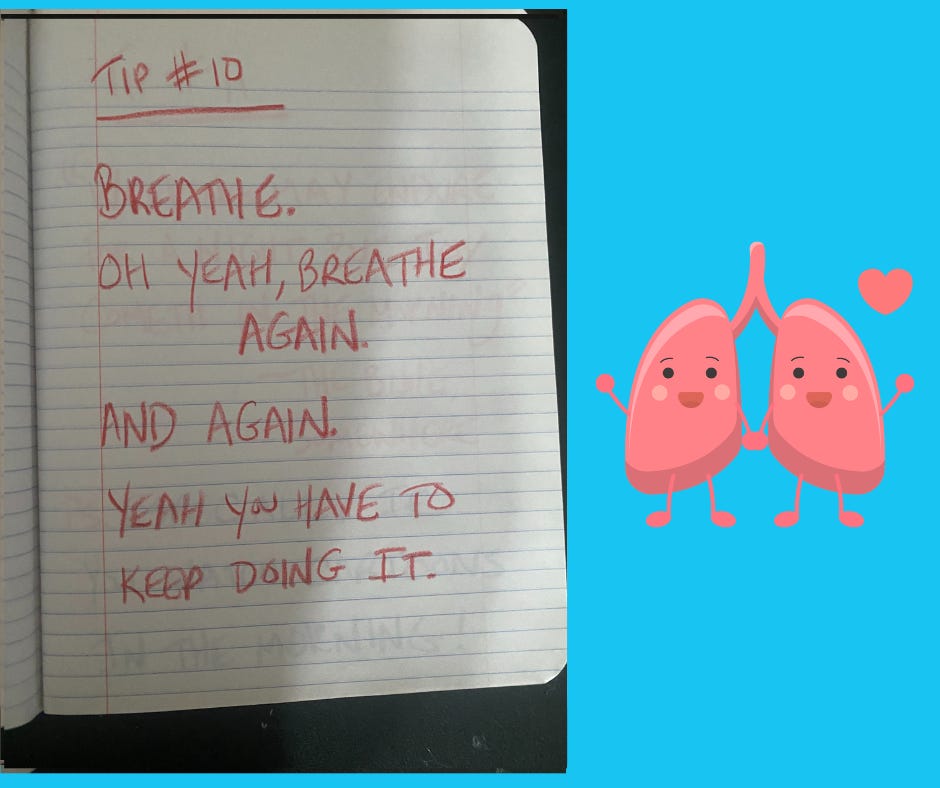 TIP #10
BREATHE.
OH YEAH, BREATHE
AGAIN.
AND AGAIN.
YEAH YOU HAVE TO
KEEP DOING IT.